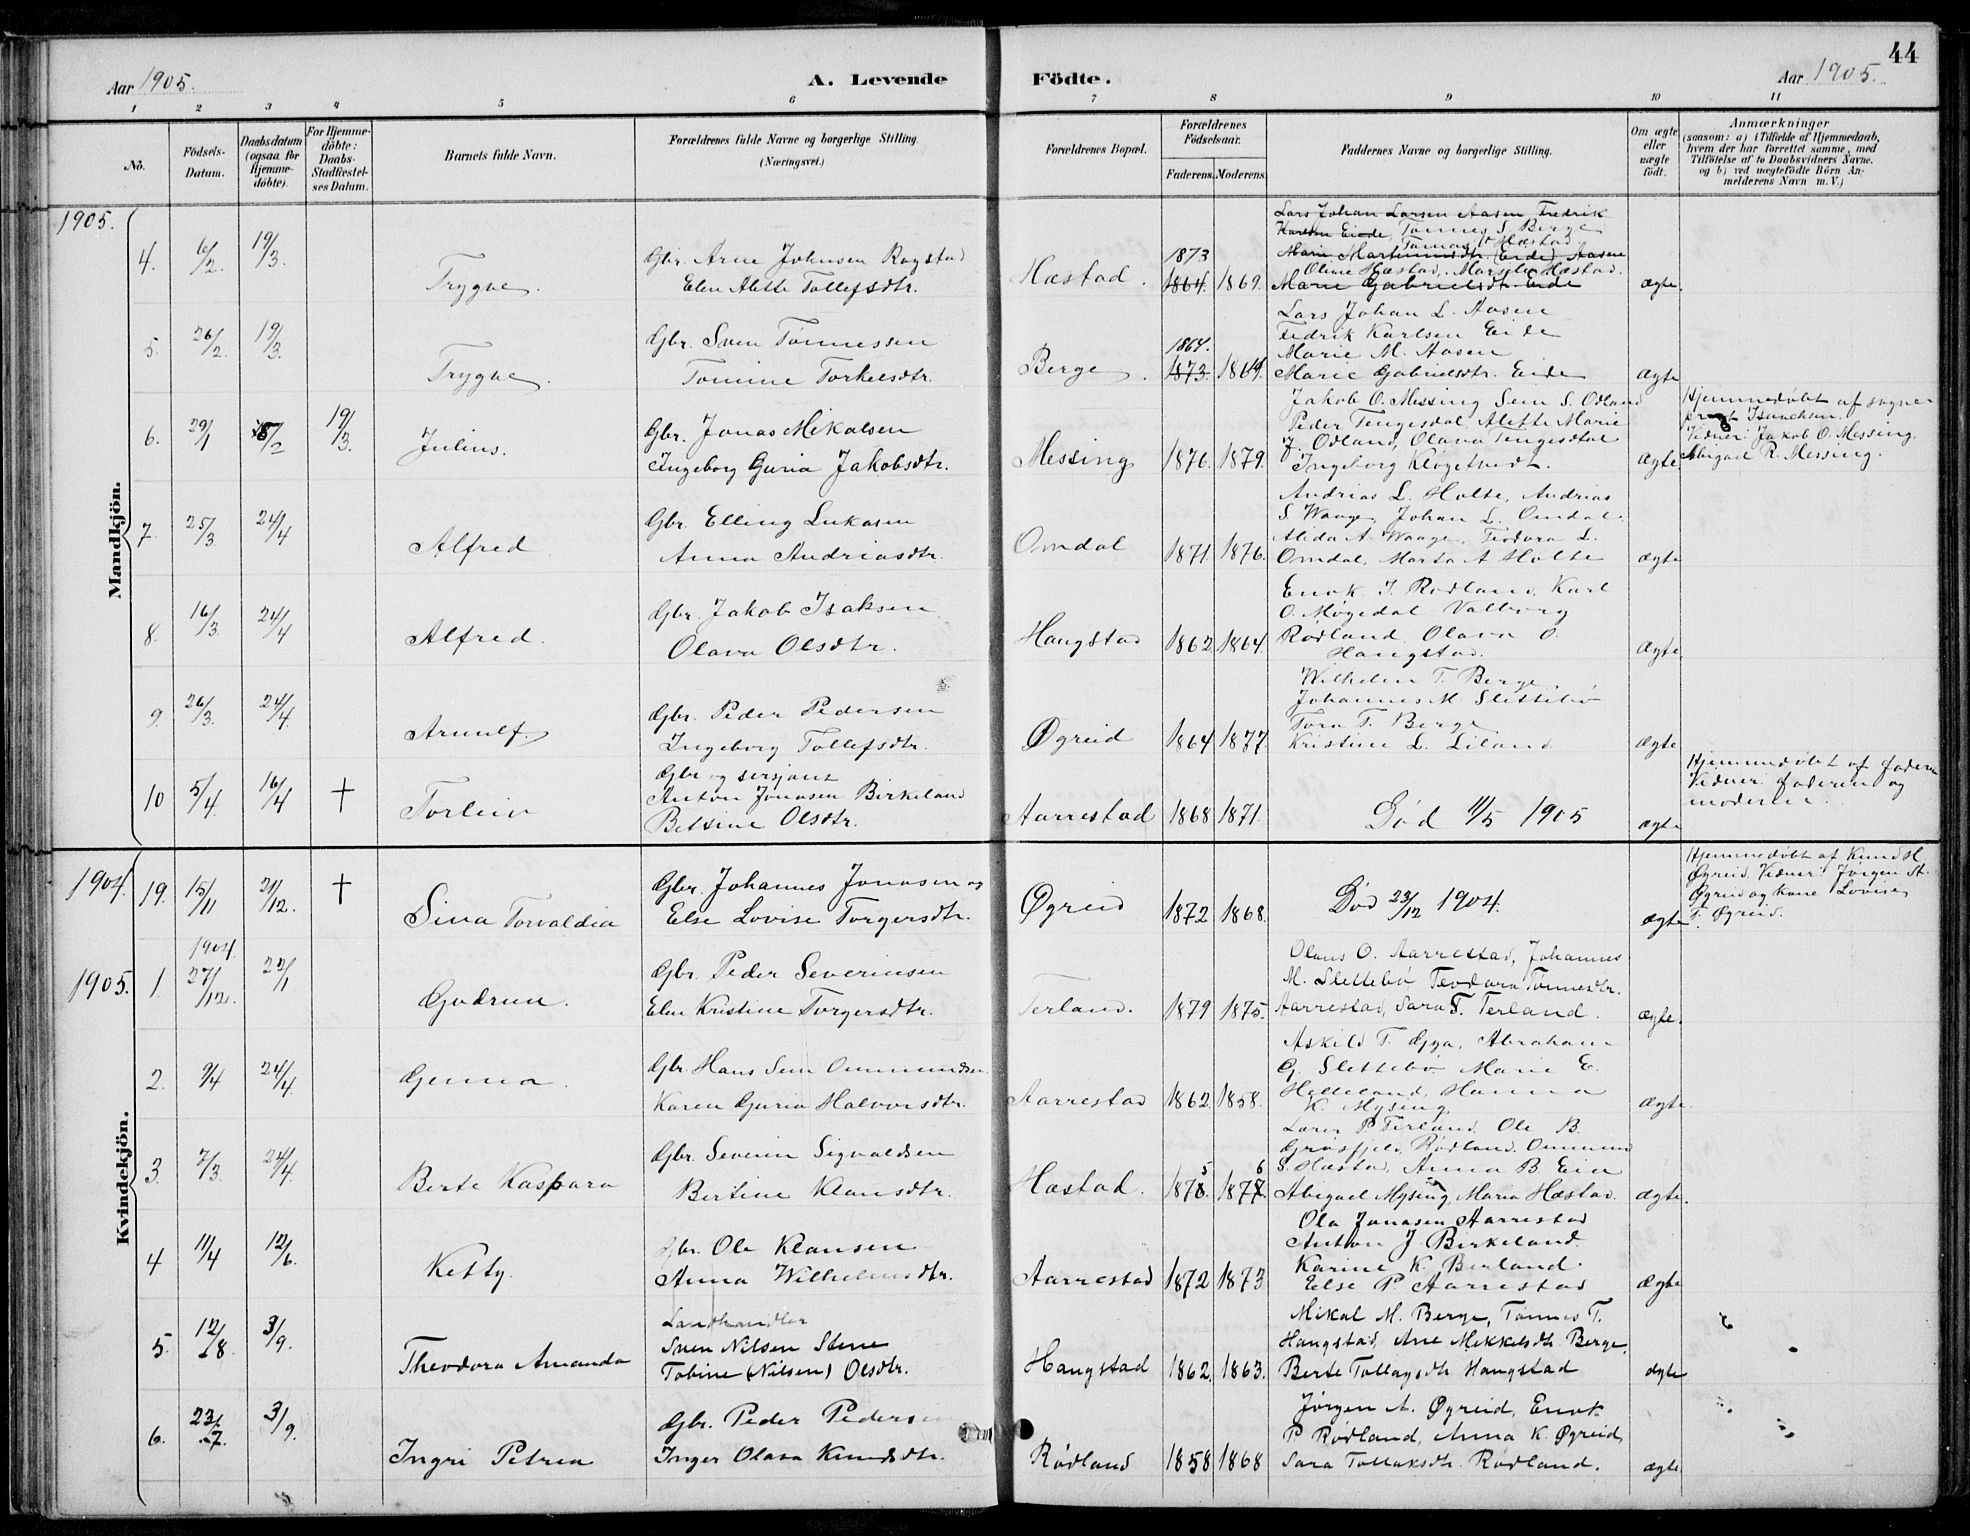 44
Aar 1905.
A. Levende
Födte.
Aar 1905.
1 2 3 4 5 6 7 8 9 10 11
No.
Födsels-Datum.
Daabsdatum (ogsaa for Hjemme-döbte).
For Hjemme-döbte: Daabs-Stadfæstel-ses Datum.
Barnets fulde Navn.
Forældrenes fulde Navne og borgerlige Stilling. (Næringsvei.)
Forældrenes Bopæl.
Forældrenes Födselsaar.
Faderens. Moderens.
Faddernes Navne og borgerlige Stilling.
Om ægte eller uægte födt.
Anmærkninger
(saasom: a) i Tilfælde af Hjemmedaab,
hvem der har forrettet samme, med
Tilföielse af to Daabsvidners Navne.
og b) ved uægtefödte Börn An-
melderens Navn m. V.)
Mandkjön.
1905.
4. 6/2. 19/3. Trygve.
Gbr. Arne Johnsen Rogstad
Elen Alette Tollefsdtr.
Hæstad. 1873 1864. 1869.
Lars Johan Larsen Aasen, Fredrik
Karlsen Eide, Tønnes S Berge
Tomas V Hæstad
Marie Martinusdtr. (Eide) Aasen
Oline Hæstad, Marselie Hæstad.
Marie Gabrielsdtr. Eide
ægte.
5. 26/2. 19/3. Trygve.
Gbr. Sven Tönnessen
Tomine Torkelsdtr.
Berge. 1864. 1873. 1864.
Lars Johan L. Aasen
Fedrik Karlsen Eide
Marie M. Aasen
Marie Gabrielsdtr. Eide
ægte
6. 29/1 8/2 19/3. Julius.
Gbr. Jonas Mikalsen
Ingeborg Guria Jakobsdtr.
Messing 1876. 1879.
Jakob O. Messing Sem S. Odland
Peder Tengesdal, Alette Marie
J. Odland, Olava Tengesdal
Ingeborg Kløgetvedt.
ægte
Hjemmedøbt af sogne-
prest Isaachsen.
Vidner: Jakob O. Messing.
Abigael R. Messing.
7. 25/3. 24/4 Alfred
Gbr. Elling Lukasen
Anna Andriasdtr.
Omdal 1871. 1876.
Andrias L. Holte, Andrias
S Waage, Johan L. Omdal.
Alida A. Waage, Teodora L.
Omdal, Marta A Holte
ægte
8. 16/3. 24/4 Alfred.
Gbr. Jakob Isaksen
Olava Olsdtr.
Haugstad 1862 1864.
Enok J. Rødland, Karl
O. Møgedal Valborg
Rødland, Olava O.
Haugstad.
ægte.
9. 26/3. 24/4. Arnulf.
Gbr. Peder Pedersen
Ingeborg Tollefsdtr.
Øgreid 1864 1877.
Wilhelm T. Berge,
Johannes M. Slettebø
Tora T. Berge
Kristine L. Liland
ægte
10 5/4. 16/4 † Torlein
Gbr og sersjant
Anton Jonasen Birkeland
Betsine Olsdtr.
Aarrestad 1868 1871.
Død 11/5 1905
ægte
Hjemmedøbt af faderen
Vidner: faderen og
moderen.
Kvindekjön.
1904. 19. 15/11 21/12. † Sina Torvaldia
Gbr. Johannes Jonasen og
Else Lovise Torgersdtr.
Øgreid 1872 1868.
Død 23/12 1904.
ægte
Hjemmedøbt af Knud H
Øgreid. Vidner: Jörgen A.
Øgreid og kone Lovise
T. Øgreid.
1905. 1. 1904. 27/12. 22/1 Gudrun.
Gbr. Peder Severinsen
Elen Kristine Torgersdtr.
Terland. 1879 1875.
Olaus O. Aarrestad, Johannes
M. Slettebø Teodora Tønnesdtr.
Aarrestad, Sara T. Terland.
ægte.
2. 9/4 24/4. Genna.
Gbr. Hans Sem Ommundsen
Karen Guria Halvorsdtr.
Aarrestad 1862. 1858.
Askild T. Gya, Abraham
G. Slettebø Marie E.
Helleland, Hanna
K. Mysing.
ægte
3. 7/3. 24/4. Berte Kaspara
Gbr. Severin Sigvaldsen
Bertine Klausdtr.
Hæstad. 1875. 1876.
Lars P Terland, Ole B.
Grøsfjeld, Rødland. Ommund
S. Hæstad, Anna B. Eia
Abigael Mysing, Maria Hæstad.
ægte.
4 11/4 12/6. Ketty.
Gbr. Ole Klausen
Anna Wilhelmsdtr.
Aarrestad 1872 1873
Ola Jonasen Aarrestad
Anton J Birkeland.
Karine K. Berland.
Else P. Aarrestad
ægte
5. 12/8. 3/9. Theodora Amanda
Landhandler
Sven Nilsen Stene
Tobine (Nilsen) Olsdtr.
Haugstad 1862. 1863.
Mikal M. Berge, Tønnes T.
Haugstad, Ane Mikkelsdtr. Berge,
Berte Tollagsdtr Haugstad
ægte
6. 23/7. 3/9. Ingri Petrea
Gbr. Peder Pedersen
Inger Olava Knudsdtr.
Rødland 1858 1868
Jörgen A. Øgreid, Enok
P Rødland, Anna K. Øgreid,
Sara Tollaksdtr. Rødland.
ægte